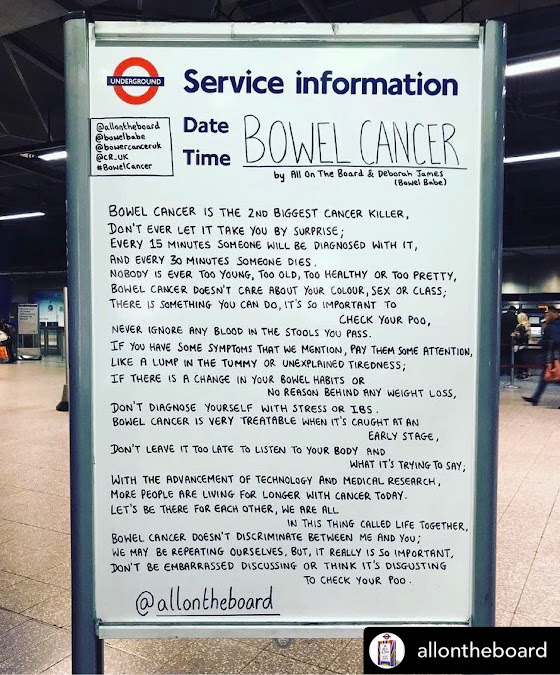 UNDERGROUND
Service information
@allontheboard
@bowelbabe
@bowercanceruk
@CR_UK
#BowelCancer
Date
Time
BOWEL CANCER
by All On The Board & Deborah James
(Bowel Babe)
BOWEL CANCER IS THE 2ND BIGGEST CANCER KILLER,
DON'T EVER LET IT TAKE YOU BY SURPRISE;
EVERY 15 MINUTES SOMEONE WILL BE DIAGNOSED WITH IT,
AND EVERY 30 MINUTES SOMEONE DIES.
NOBODY IS EVER TOO YOUNG, TOO OLD, TOO HEALTHY OR TOO PRETTY,
BOWEL CANCER DOESN'T CARE ABOUT YOUR COLOUR, SEX OR CLASS;
THERE IS SOMETHING YOU CAN DO, IT'S SO IMPORTANT TO
CHECK YOUR POO,
NEVER IGNORE ANY BLOOD IN THE STOOLS YOU PASS.
IF YOU HAVE SOME SYMPTOMS THAT WE MENTION, PAY THEM SOME ATTENTION,
LIKE A LUMP IN THE TUMMY OR UNEXPLAINED TIREDNESS;
IF THERE IS A CHANGE IN YOUR BOWEL HABITS OR
NO REASON BEHIND ANY WEIGHT LOSS,
DON'T DIAGNOSE YOURSELF WITH STRESS OR IBS.
BOWEL CANCER IS VERY TREATABLE WHEN IT'S CAUGHT AT AN
EARLY STAGE,
DON'T LEAVE IT TOO LATE TO LISTEN TO YOUR BODY AND
WHAT IT'S TRYING TO SAY;
WITH THE ADVANCEMENT OF TECHNOLOGY AND MEDICAL RESEARCH,
MORE PEOPLE ARE LIVING FOR LONGER WITH CANCER TODAY.
LET'S BE THERE FOR EACH OTHER, WE ARE ALL
IN THIS THING CALLED LIFE TOGETHER,
BOWEL CANCER DOESN'T DISCRIMINATE BETWEEN ME AND YOU;
WE MAY BE REPEATING OURSELVES, BUT, IT REALLY IS SO IMPORTANT,
DON'T BE EMBARRASSED DISCUSSING OR THINK IT'S DISGUSTING
TO CHECK YOUR POO.
@allontheboard
allontheboard